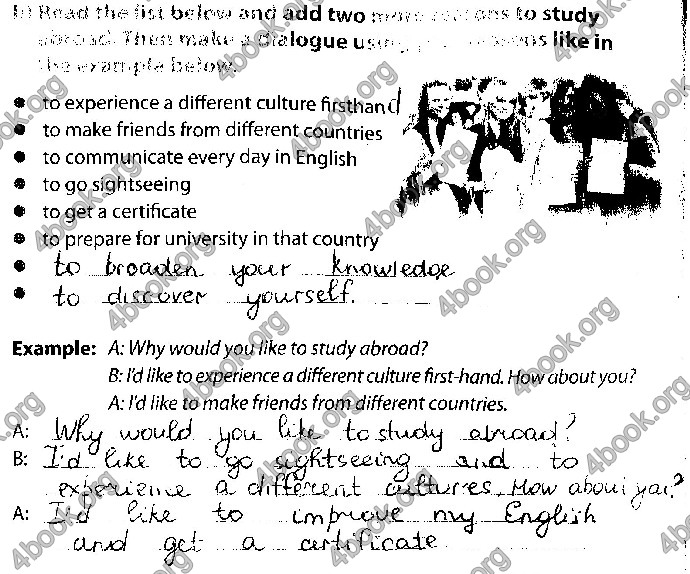 b) Read the list below and add two more reasons to study
abroad. Then make a dialogue using your reasons like in
the example below.
• to experience a different culture firsthand
• to make friends from different countries
• to communicate every day in English
• to go sightseeing
• to get a certificate
• to prepare for university in that country
• to broaden your knowledge
• to discover yourself.
Example: A: Why would you like to study abroad?
B: I'd like to experience a different culture first-hand. How about you?
A: I'd like to make friends from different countries.
A: Why would you like to study abroad?
B: I'd like to go sightseeing and to
experience a different cultures. How about you?
A: I'd like to improve my English
and get a certificate
4book.org